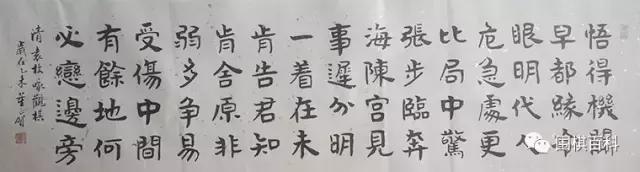 悟得機關
早都緣冷
眼明代人
危急處更
比局中驚
張步臨奔
海陳宮見
事遲分明
一着在未
肯告君知
肯舍原非
弱多争易
受傷中間
有餘地何
必戀邊旁
清袁枚詠觀棋
歲在乙未董
围棋百科